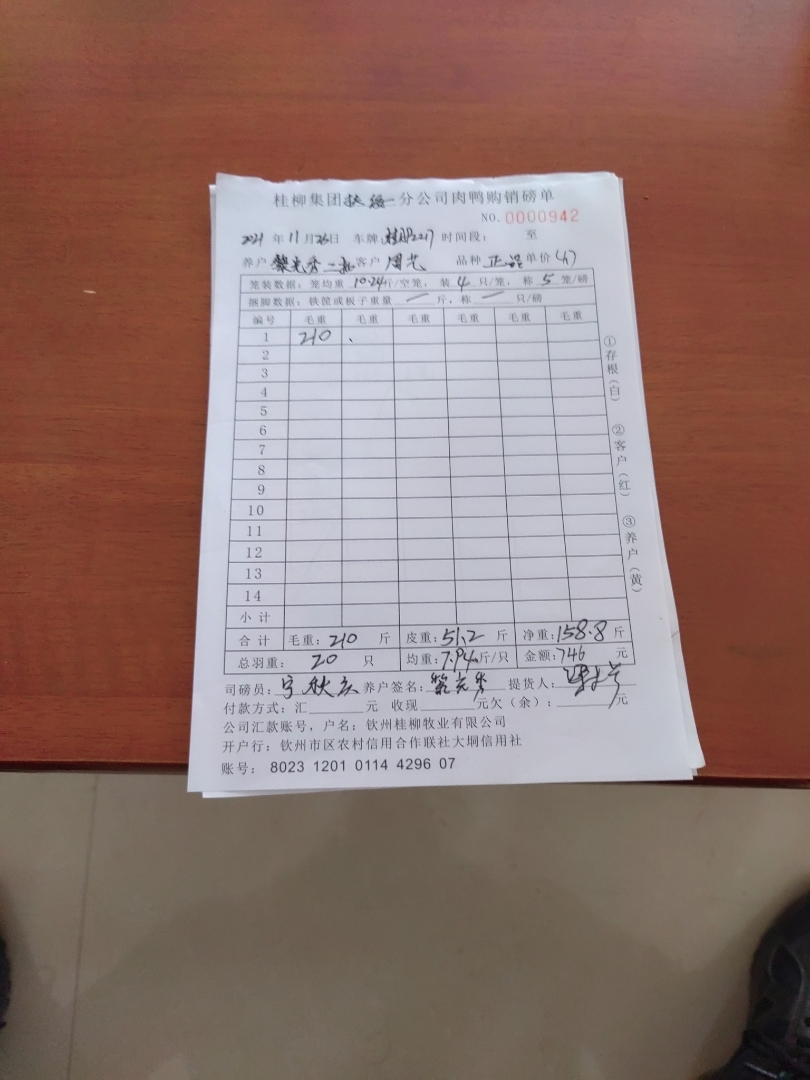 桂柳集团扶绥分公司肉鸭购销磅单
NO.0000942
2021年11月26日 车牌: 时间段: 至
养户 黎克秀 二批 客户 周艺 品种 正品 单价
笼装数据:笼均重 10.24斤/空笼,装 4 只/笼,称 5 笼/磅
捆脚数据:铁筐或板子重量 — 斤,称 — 只/磅
编号 毛重 毛重 毛重 毛重 毛重 毛重
1 210
2
3
4
5
6
7
8
9
10
11
12
13
14
小计
合计 毛重:210 斤 皮重:51.2 斤 净重:158.8 斤
总羽重: 20 只 均重:7.94斤/只 金额:746 元
司磅员: 养户签名:黎克秀 提货人:
付款方式:汇 元 收现 元欠(余): 元
公司汇款账号,户名:钦州桂柳牧业有限公司
开户行:钦州市区农村信用合作联社大垌信用社
账号: 8023 1201 0114 4296 07
①存根(白)
②客户(红)
③养户(黄)